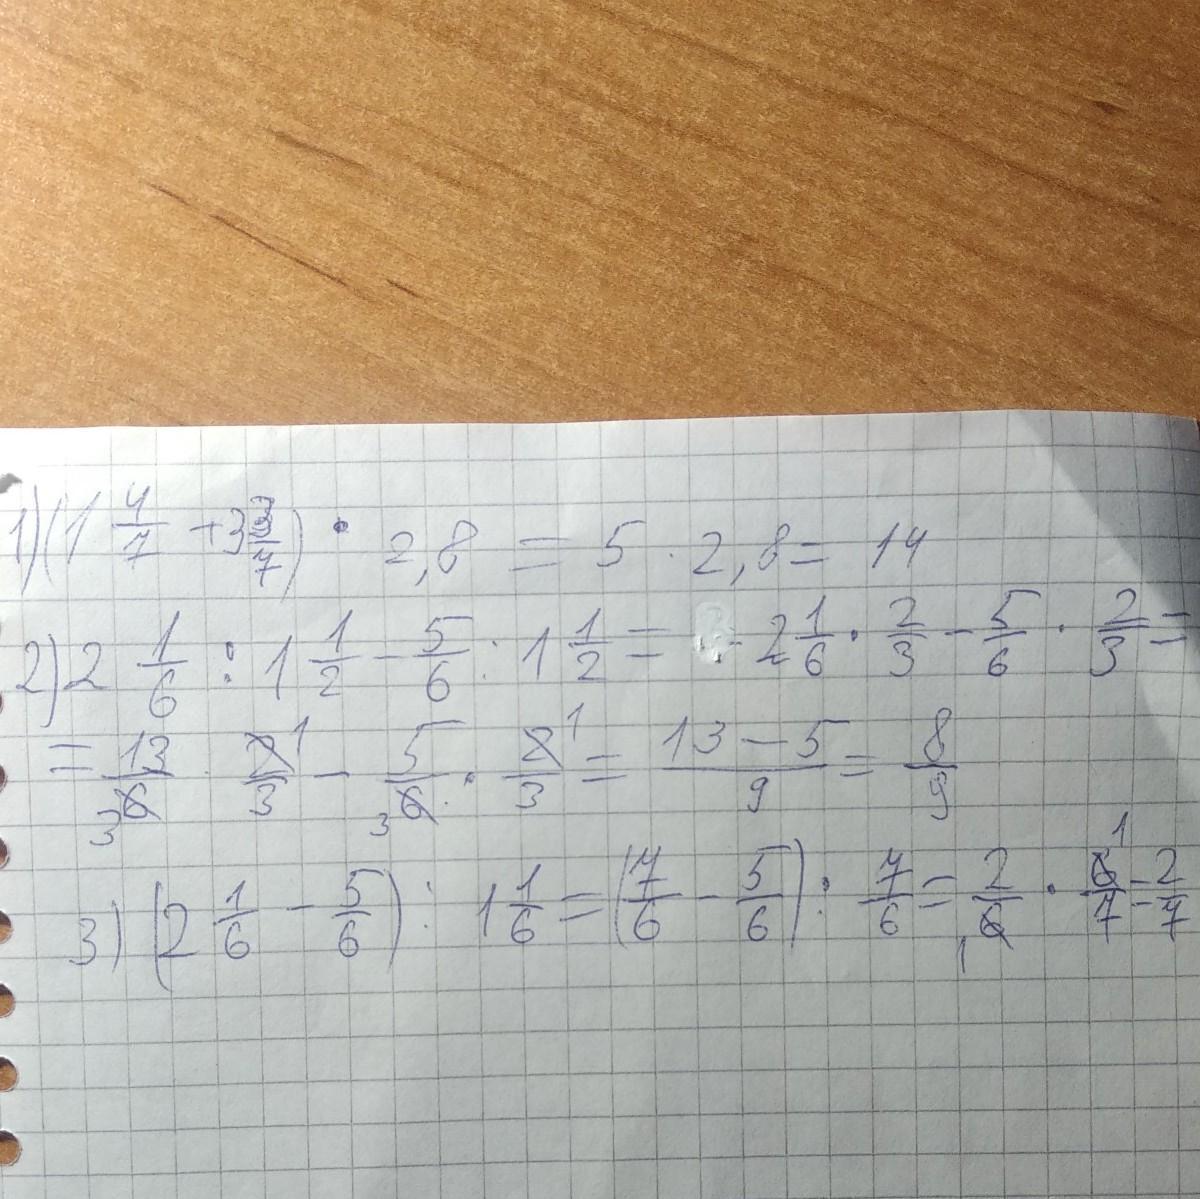 1) (1 4/7 + 3 3/7) · 2,8 = 5 · 2,8 = 14
2) 2 1/6 : 1 1/2 - 5/6 : 1 1/2 = 2 1/6 · 2/3 - 5/6 · 2/3 =
= 13/6 3 · 2/3 1 - 5/6 3 · 2/3 1 = 13-5/9 = 8/9
3) (2 1/6 - 5/6) : 1 1/6 = (7/6 - 5/6) : 7/6 = 2/6 1 · 6/7 1 = 2/7